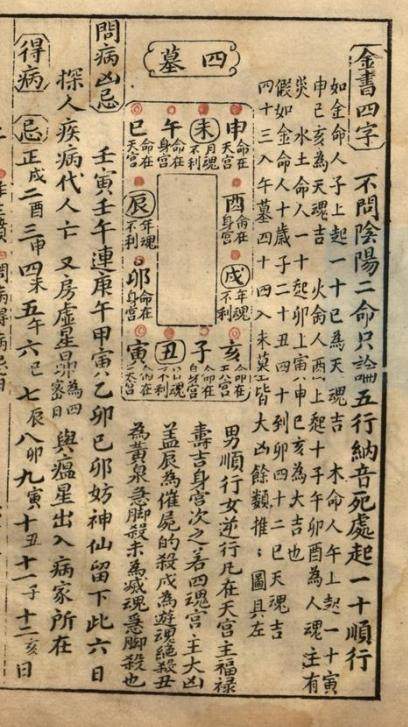 金書四字
不問陰陽二命只論五行納音死處起一十順行
如金命人子上起一十巳為天魂吉 木命人午上起一十寅
申巳亥為天魂吉 火命人酉上起十子午卯酉為人魂主有
災 水土命人一十起卯上寅申巳亥為大吉也
假如金命人十歲子二十丑四十到卯四十二巳天魂吉
四十三入午墓四十四入未墓皆大凶餘類推 圖具左
四墓
申 命在天宮
未 月魂不利
午 命在身宮
巳 命在天宮
酉 命在身宮
戌 年魂不利
辰 年魂不利
卯 命在身宮
亥 命在天宮
子 命在身宮
丑 不利
寅
男順行女逆行凡在天宮主福祿
壽吉身宮次之若四魂宮主大凶
蓋辰為催屍的殺戌為遊魂絕殺丑
為黃泉急脚殺未為滅魂急脚殺也
問病凶忌
壬寅壬午連庚午甲寅乙卯己卯妨神仙留下此六日
探人疾病代人亡 又房虛星昴為四密日 與瘟星出入病家所在
得病
忌
正戌二酉三申四未五午六巳七辰八卯九寅十丑十一子十二亥日